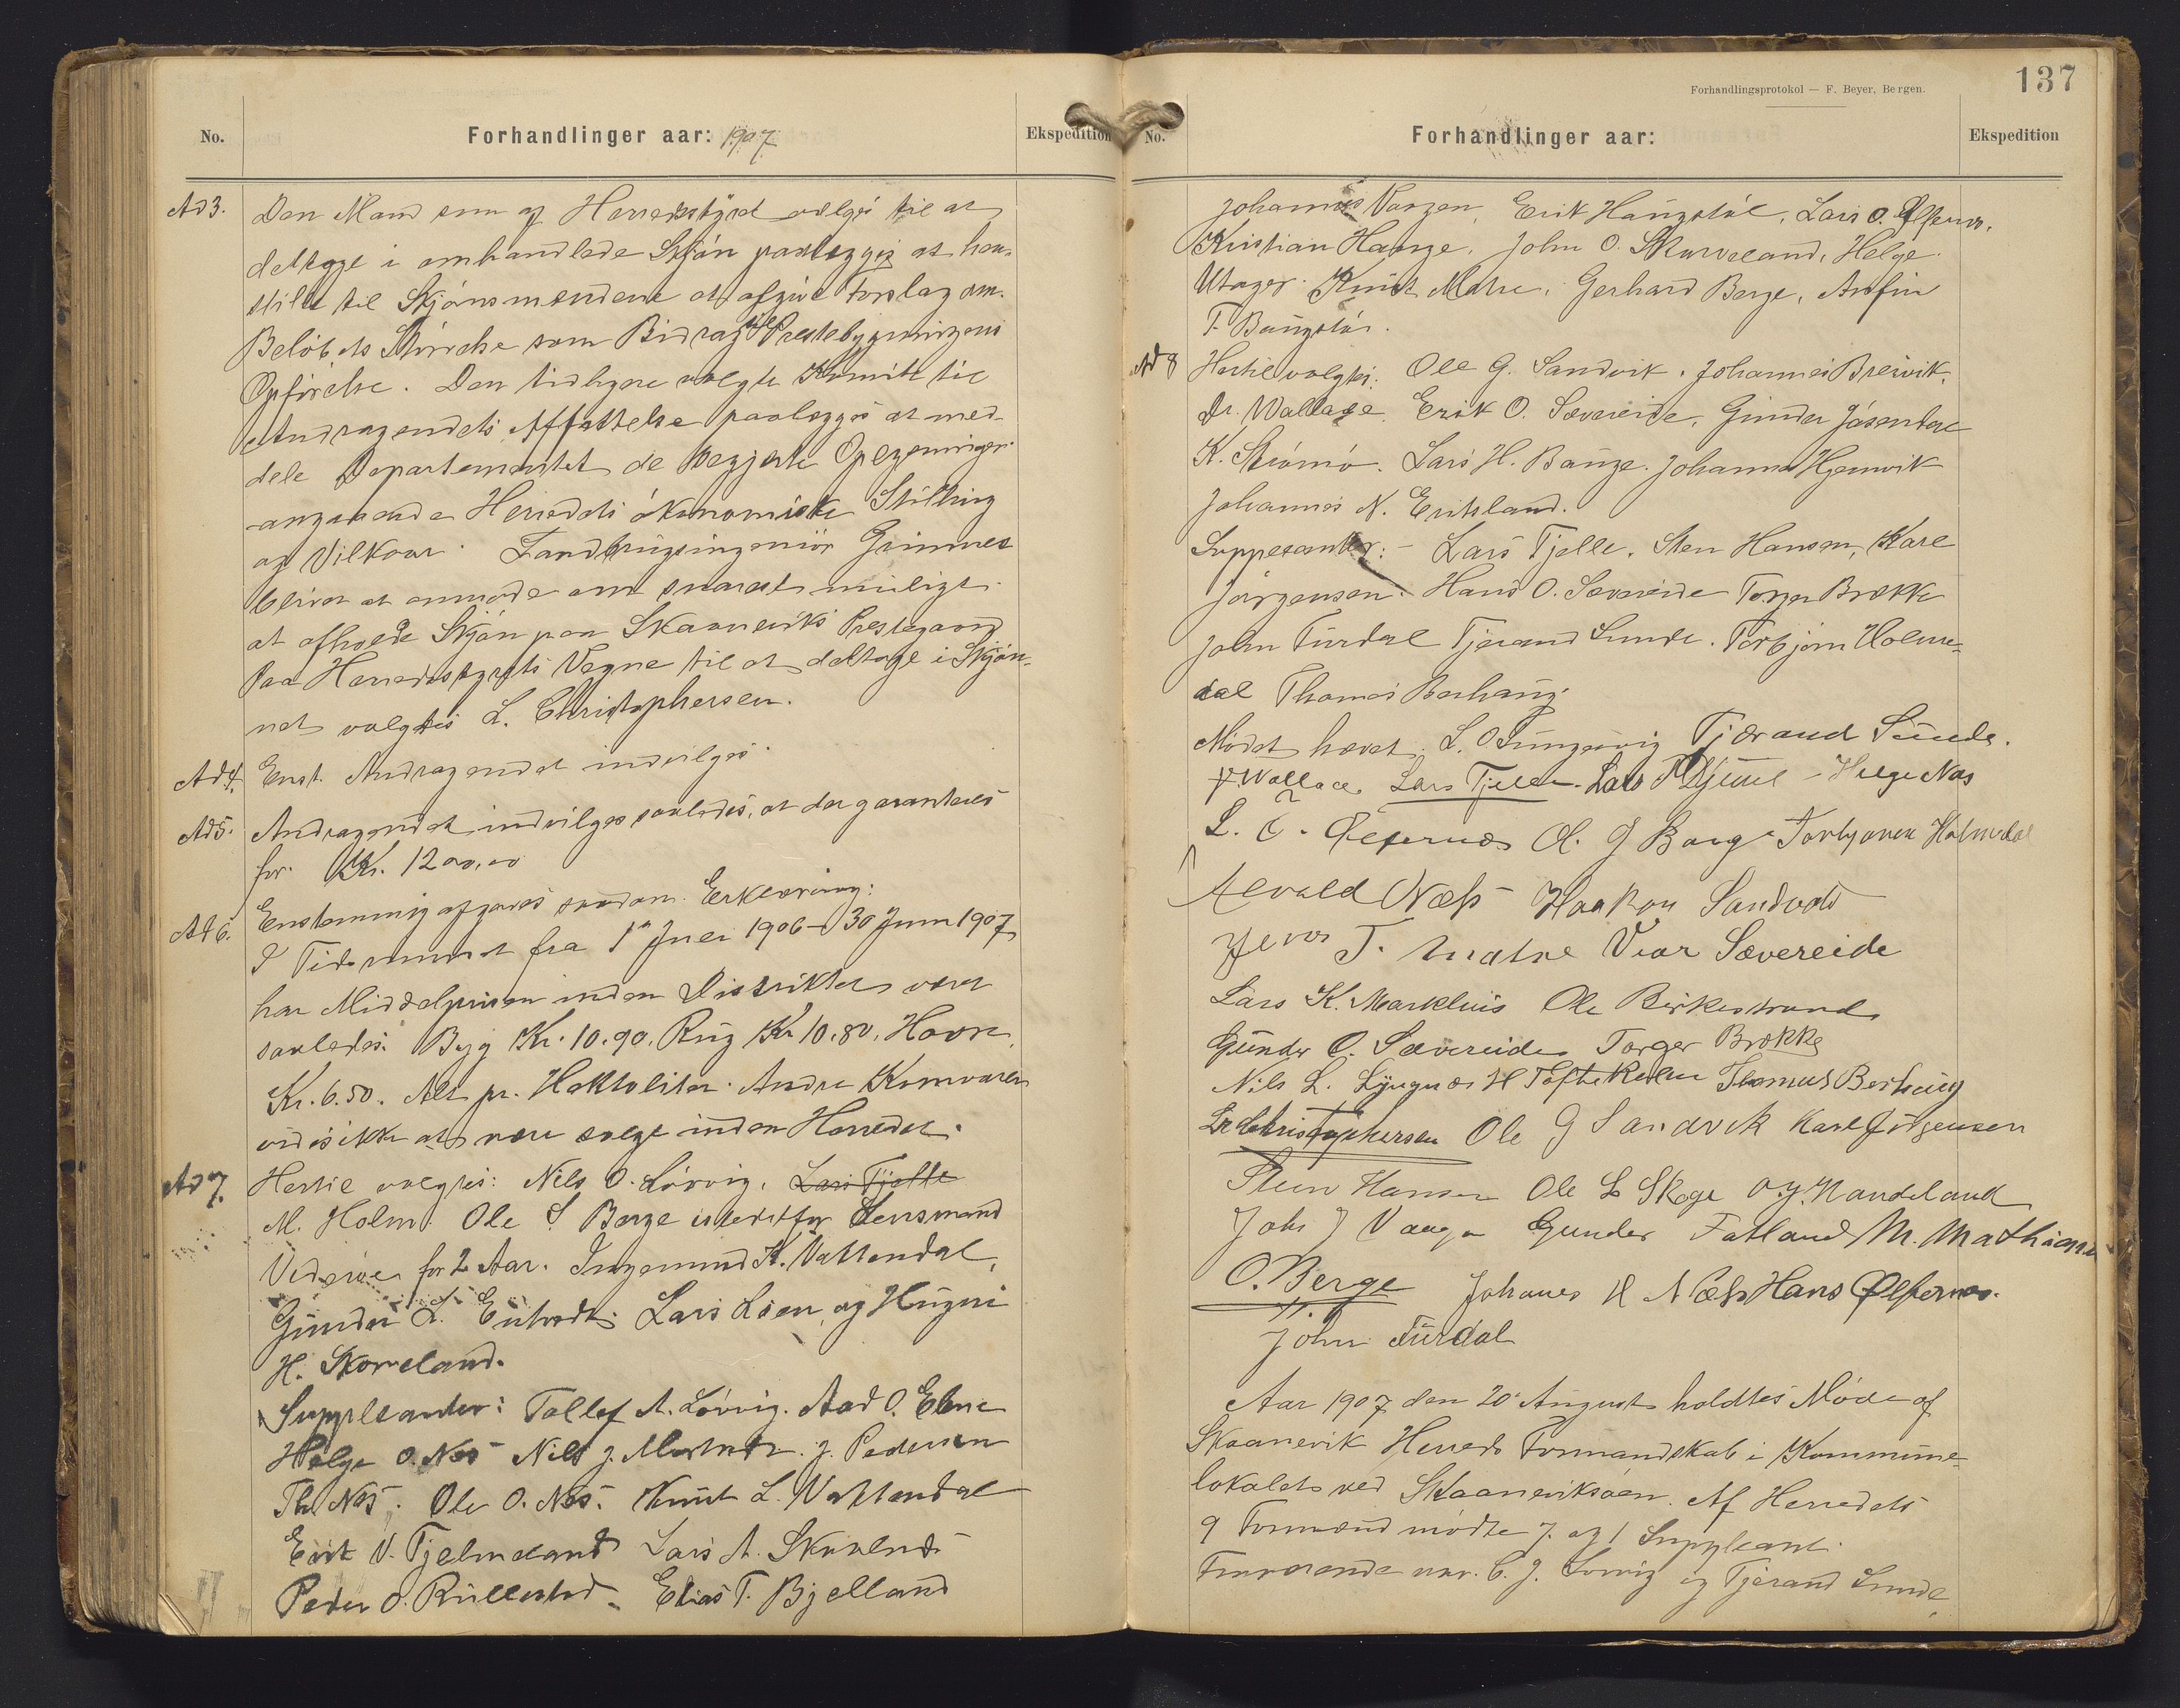 No.
Forhandlinger aar: 1907
Ekspedition
Ad 3.
Den Mand som af Herredsstyret vælges til at
deltage i omhandlede Skjön paalægges at hen-
stille til Skjönsmændene at afgive Forslag om
Belöbets Störrelse som Bidrag til Prestebygningens
Opförelse. Den tidligere valgte Komite til
Andragendets Affattelse paalægges at med-
dele Departementet de begjærte Oplysninger
angaaende Herredets ökonomiske Stilling
og Vilkaar. Landbrugsingeniör Grimnes
bliver at anmode om snarest muligt
at afholde Skjön paa Skaaneviks Prestegaard
Paa Herredsstyrets Vegne til at deltage i Skjön-
net valgtes L. Christophersen.
Ad 4.
Enst. Andragendet indvilges.
Ad 5.
Andragendet indvilges saaledes, at der garanteres
for Kr. 1200,00
Ad 6.
Enstemmig afgaves saadan Erklæring:
I Tidsrummet fra 1ste Juli 1906 - 30 Juni 1907
har Middelprisen inden Distriktet været
saaledes: Byg Kr. 10.90. Rug Kr 10.80. Havre
Kr. 6.50. Alt pr. Hektoliter. Andre Kornvarer
vides ikke at være solgt inden Herredet.
Ad 7.
Hertil valgtes: Nils O. Lörvig, Lars Tjelle
M. Holm. Ole S. Berge istedetfor Lensmand
for 2 Aar. Ingemund K. Vattendal,
Gunder L. Lars Löen, og Hugni
H. Skoveland.
Suppleanter: Tollef A. Lörvig. Aad O. Ebne
Helge O. Næs Nils J. J. Pedersen
Th. Næs. Ole O. Næs. Knut L. Vattendal
Erik V. Tjelmeland Lars A.
Peder O. Rullestad. Elias T. Bjelland
Forhandlingsprotokol — F. Beyer, Bergen.
137
No.
Forhandlinger aar:
Ekspedition
Johannes Vaagen, Erik Haugstöl, Lars O. Ölfernes.
Kristian Hauge, John O. Skarveland, Helge
Utager. Knut Matre, Gerhard Berge, Anfin
T. Baugstöl.
Ad 8
Hertil valgtes: Ole G. Sandvik. Johannes Breivik.
Dr. Wallace. Erik O. Sævereide, Gunder Jösendal
K. Strömö. Lars H. Bauge. Johannes Hjemvik
Johannes N. Eriksland.
Suppleanter: - Lars Tjelle. Sten Hansen, Karl
Jörgensen. Hans O. Sævereide Torger Brække
John Furdal Tjerand Sunde. Torbjörn Holme-
dal Thomas Berhaug.
Mödet hævet. L. O. Tungesvig Tjærand Sunde.
F. Wallace. Lars Tjelle. Lars Helge Næs
L. O. Ølfernes O. G Berge Torbjørn Holmedal
Aevald Næss Haakon Sandvold
T. Matre Viar Sævereide
Lars K. Markhus Ole Birkestrand
Gunder O. Sævereide Torger Brække
Nils L. Lyngnæs H Toftekalv Thomas Berhaug
L. Christophersen Ole G Sandvik Karl Jörgensen
Steen Hansen Ole L Skoge O. J. Handeland
Johs J Vaage Gunder Fatland M. Mathiesen
O. Berge Johanes H Næss Hans Ølfernes.
John Furdal
Aar 1907 den 20 August holdtes Möde af
Skaanevik Herreds Formandskab i Kommune-
lokalet ved Skaaneviksöen. Af Herredets
9 Formænd mödte 7 og 1 Suppleant.
Fraværende var C. J. Lörvig og Tjerand Sunde